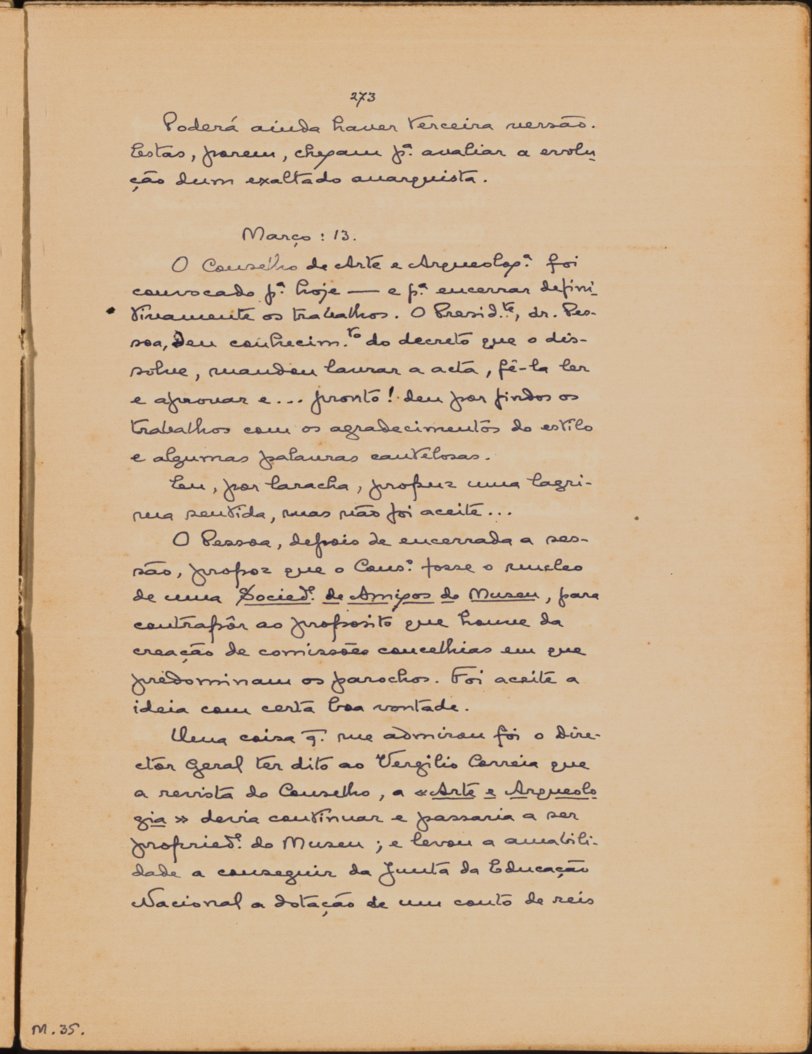 273
Poderá ainda haver terceira versão.
Estas, porem, chegam p.ª avaliar a evolu-
ção dum exaltado anarquista.
Março: 13.
O Conselho de Arte e Arqueolog.ª foi
convocado p.ª hoje — e p.ª encerrar defini-
tivamente os trabalhos. O Presid.te, dr. Pes-
soa, deu conhecim.to do decreto que o dis-
solve, mandou lavrar a acta, fê-la ler
e aprovar e... pronto! deu por findos os
trabalhos com os agradecimentos do estilo
e algumas palavras cautelosas.
Eu, por laracha, propuz uma lagri-
ma sentida, mas não foi aceite...
O Pessoa, depois de encerrada a ses-
são, propoz que o Cons.º fosse o nucleo
de uma Socied.e de Amigos do Museu, para
contrapôr ao proposito que houve da
creação de comissões concelhias em que
predominam os parochos. Foi aceite a
ideia com certa boa vontade.
Uma coisa q. me admirou foi o Dire-
ctor Geral ter dito ao Vergilio Correia que
a revista do Conselho, a «Arte e Arqueolo
gia» devia continuar e passaria a ser
propried.e do Museu; e levou a amabili-
dade a conseguir da Junta da Educação
Nacional a dotação de um conto de reis
M. 35.